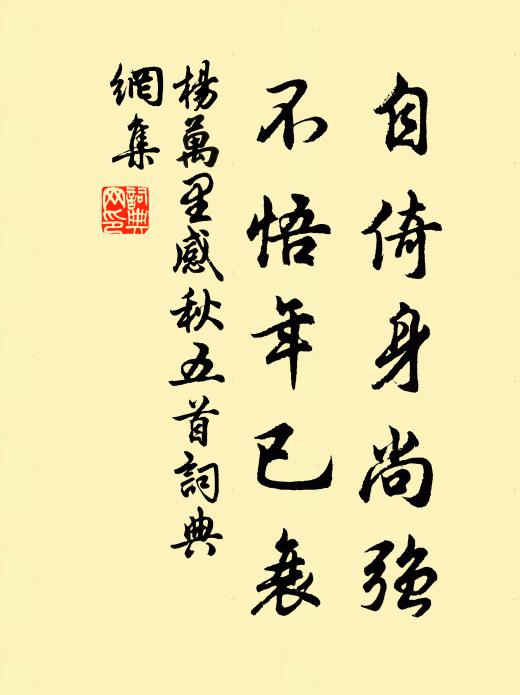 自倚身尚強
不悟年已衰
楊萬里感秋五首詞典
網集
詞典
網印